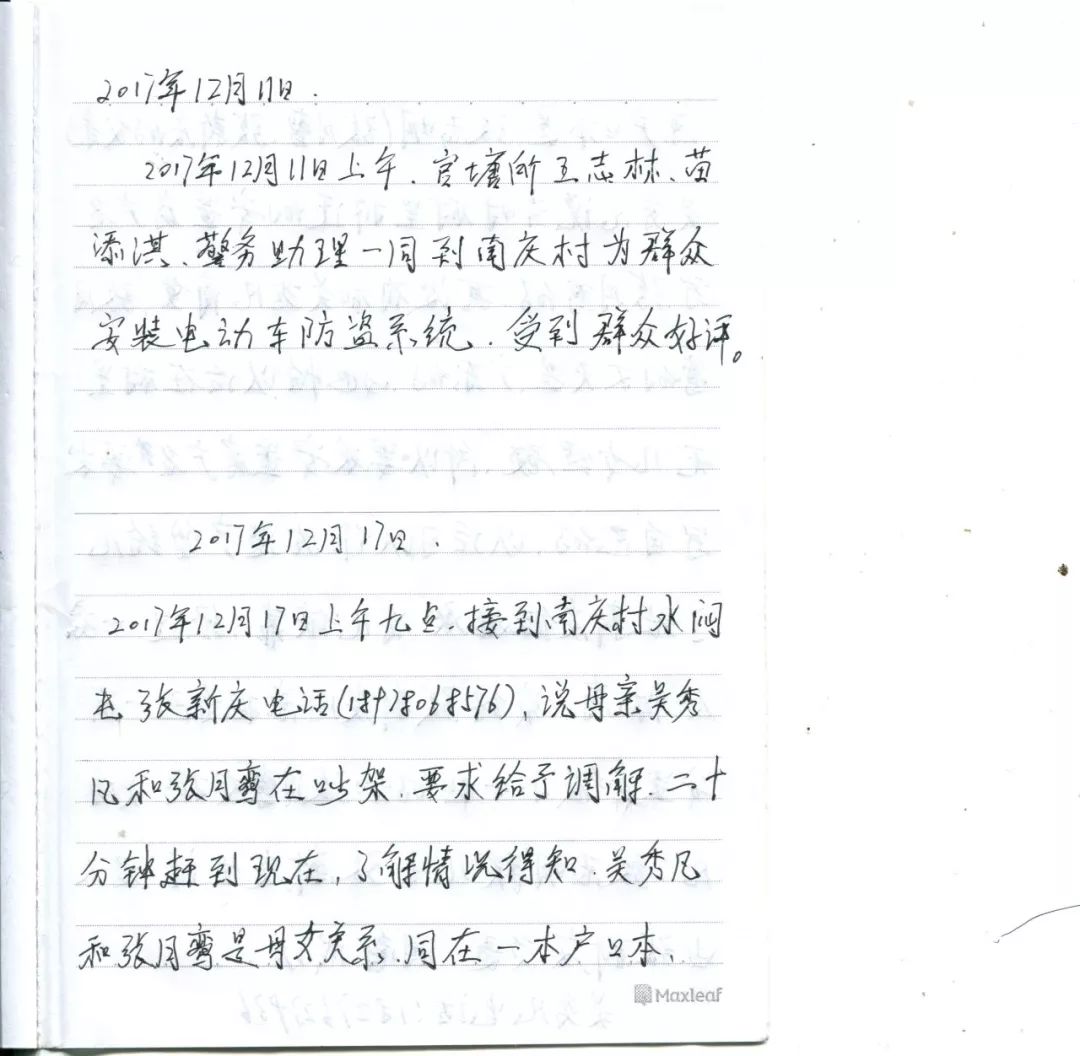 2017年12月11日.
2017年12月11日上午.官塘所王志林、苗
添淇、警务助理一同到南庆村为群众
安装电动车防盗系统.受到群众好评。
2017年12月17日.
2017年12月17日上午九点.接到南庆村水闷
屯张新庆电话(18978068576),说母亲吴秀
凡和张月鸾在吵架.要求给予调解.二十
分钟赶到现在,了解情况得知.吴秀凡
和张月鸾是母女关系.同在一本户口本、
Maxleaf